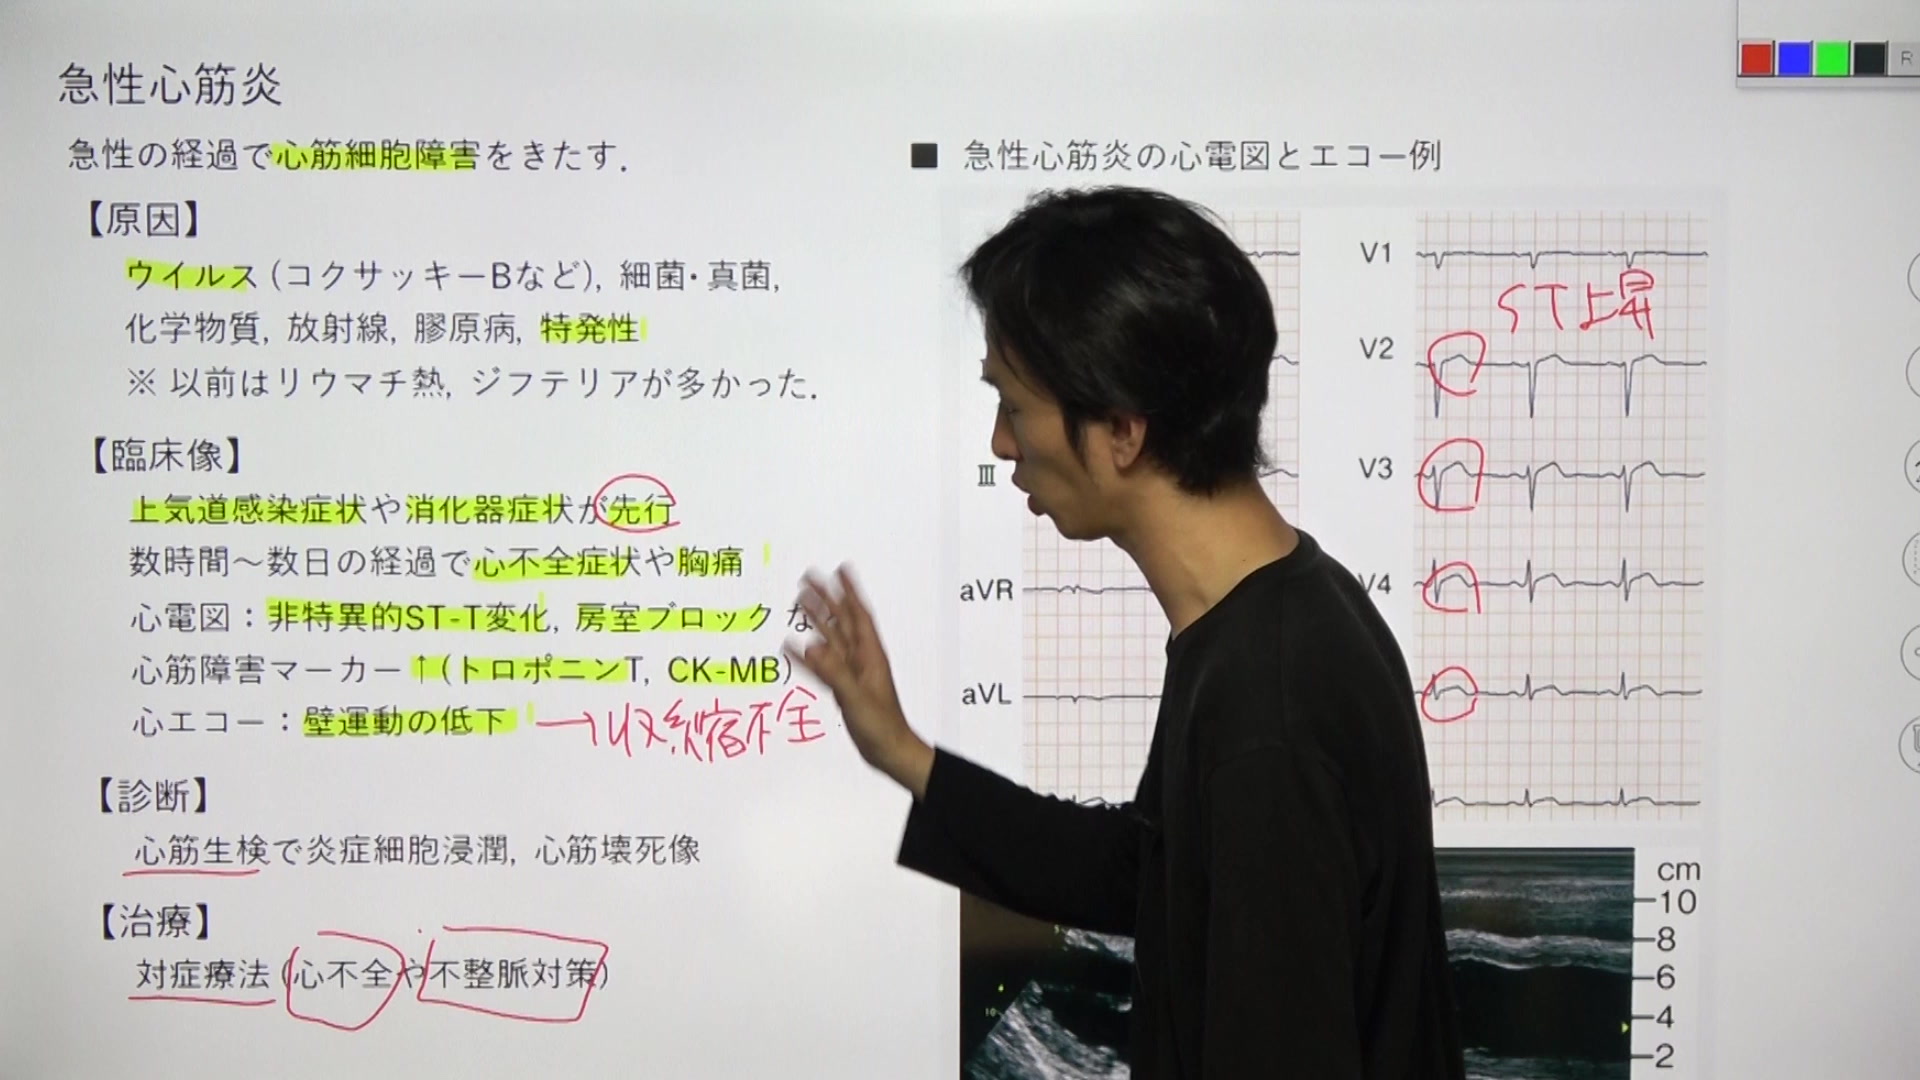 急性心筋炎
急性の経過で心筋細胞障害をきたす.
【原因】
ウイルス(コクサッキーBなど), 細菌・真菌,
化学物質, 放射線, 膠原病, 特発性
※ 以前はリウマチ熱, ジフテリアが多かった.
【臨床像】
上気道感染症状や消化器症状が先行
数時間~数日の経過で心不全症状や胸痛
心電図:非特異的ST-T変化, 房室ブロック な
心筋障害マーカー↑(トロポニンT, CK-MB)
心エコー:壁運動の低下 →収縮不全
【診断】
心筋生検で炎症細胞浸潤, 心筋壊死像
【治療】
対症療法(心不全や不整脈対策)
■ 急性心筋炎の心電図とエコー例
V1
ST上昇
V2
III
V3
aVR
V4
aVL
cm
10
8
6
4
2
10
R